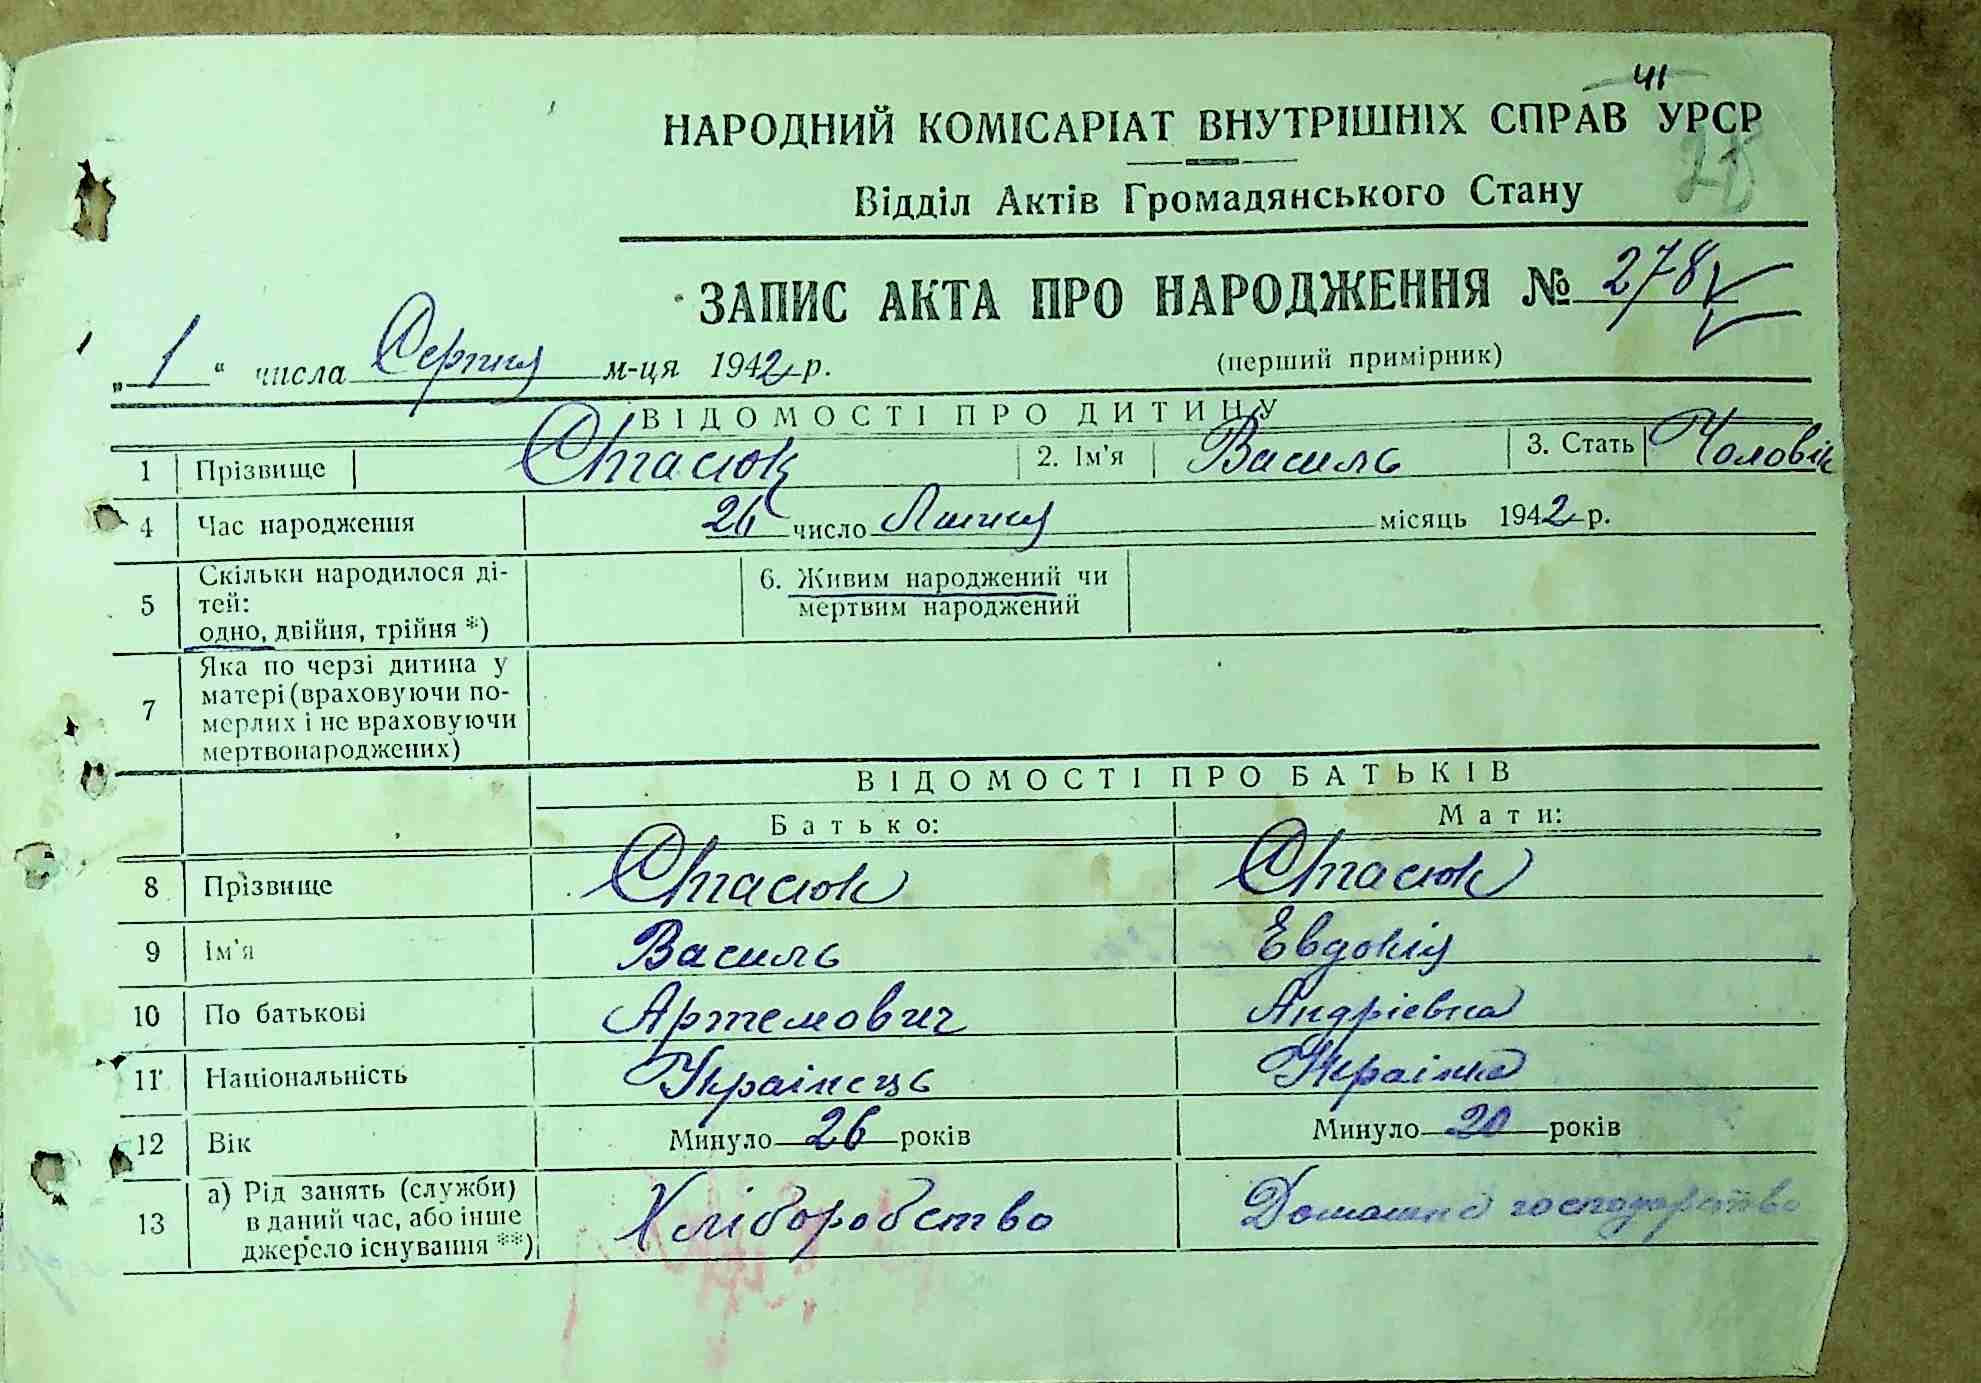 41
НАРОДНИЙ КОМІСАРІАТ ВНУТРІШНІХ СПРАВ УРСР
28
Відділ Актів Громадянського Стану
ЗАПИС АКТА ПРО НАРОДЖЕННЯ № 278
„1“ числа Серпня м-ця 1942 р. (перший примірник)
ВІДОМОСТІ ПРО ДИТИНУ
1 Прізвище Стасюк 2. Ім'я Василь 3. Стать Чоловік
4 Час народження 26 число Липня місяць 1942 р.
5 Скільки народилося ді-
тей:
одно, двійня, трійня *)
6. Живим народжений чи
мертвим народжений
7 Яка по черзі дитина у
матері (враховуючи по-
мерлих і не враховуючи
мертвонароджених)
ВІДОМОСТІ ПРО БАТЬКІВ
Батько: Мати:
8 Прізвище Стасюк Стасюк
9 Ім'я Василь Евдокія
10 По батькові Артемович Андріевна
11 Національність Українець Українка
12 Вік Минуло 26 років Минуло 20 років
13 а) Рід занять (служби)
в даний час, або інше
джерело існування **)
Хліборобство Домашнє господарство